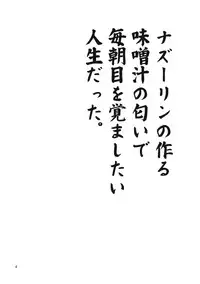 ナズーリンの作る
味噌汁の匂いで
毎朝目を覚ましたい
人生だった。